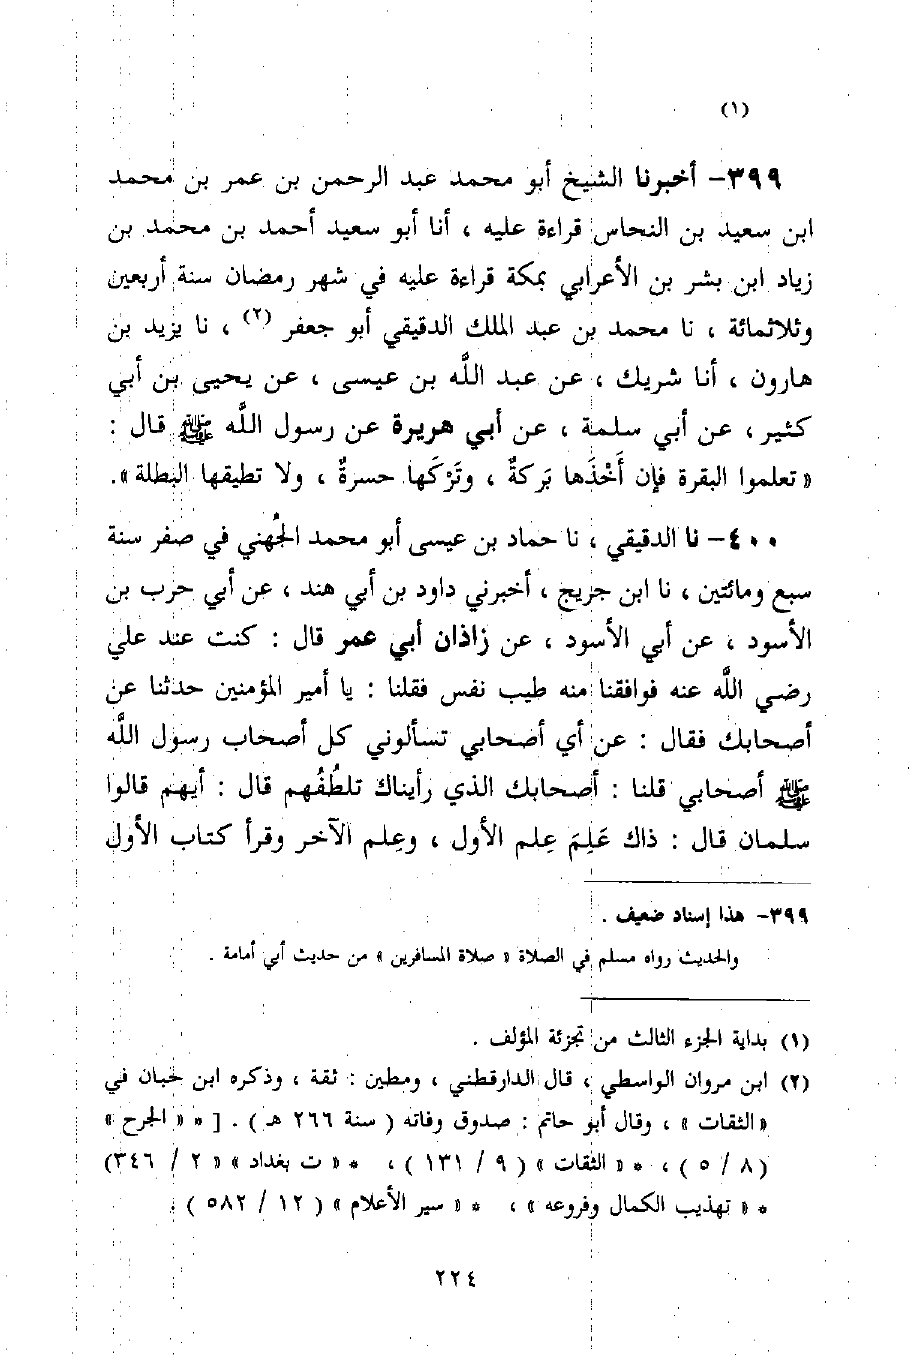 (١)
٣٩٩- أخبرنا الشيخ أبو محمد عبد الرحمن بن عمر بن محمد
ابن سعيد بن النحاس قراءة عليه ، أنا أبو سعيد أحمد بن محمد بن
زياد ابن بشر بن الأعرابي بمكة قراءة عليه في شهر رمضان سنة أربعين
وثلاثمائة ، نا محمد بن عبد الملك الدقيقي أبو جعفر (٢) ، نا يزيد بن
هارون ، أنا شريك ، عن عبد اللَّه بن عيسى ، عن يحيى بن أبي
كثير ، عن أبي سلمة ، عن أبي هريرة عن رسول اللَّه ﷺ قال :
« تعلموا البقرة فإن أَخْذَها بَركةٌ ، وتَرْكَها حسرةٌ ، ولا تطيقها البطلة ».
٤٠٠- نا الدقيقي ، نا حماد بن عيسى أبو محمد الجُهني في صفر سنة
سبع ومائتين ، نا ابن جريج ، أخبرني داود بن أبي هند ، عن أبي حرب بن
الأسود ، عن أبي الأسود ، عن زاذان أبي عمر قال : كنت عند علي
رضي اللَّه عنه فوافقنا منه طيب نفس فقلنا : يا أمير المؤمنين حدثنا عن
أصحابك فقال : عن أي أصحابي تسألوني كل أصحاب رسول اللَّه
ﷺ أصحابي قلنا : أصحابك الذي رأيناك تلطُفُهم قال : أيهم قالوا
سلمان قال : ذاك عَلِمَ عِلم الأول ، وعِلم الآخر وقرأ كتاب الأول
٣٩٩- هذا إسناد ضعيف .
والحديث رواه مسلم في الصلاة « صلاة المسافرين » من حديث أبي أمامة .
(١) بداية الجزء الثالث من تجزئة المؤلف .
(٢) ابن مروان الواسطي ، قال الدارقطني ، ومطين : ثقة ، وذكره ابن حبان في
« الثقات » ، وقال أبو حاتم : صدوق وفاته ( سنة ٢٦٦ هـ ) . [ * « الجرح »
( ٨ / ٥ ) ، * « الثقات » ( ٩ / ١٣١ ) ، * « ت بغداد » « ٢ / ٣٤٦)
* « تهذيب الكمال وفروعه » ، * « سير الأعلام » ( ١٢ / ٥٨٢ )
٢٢٤